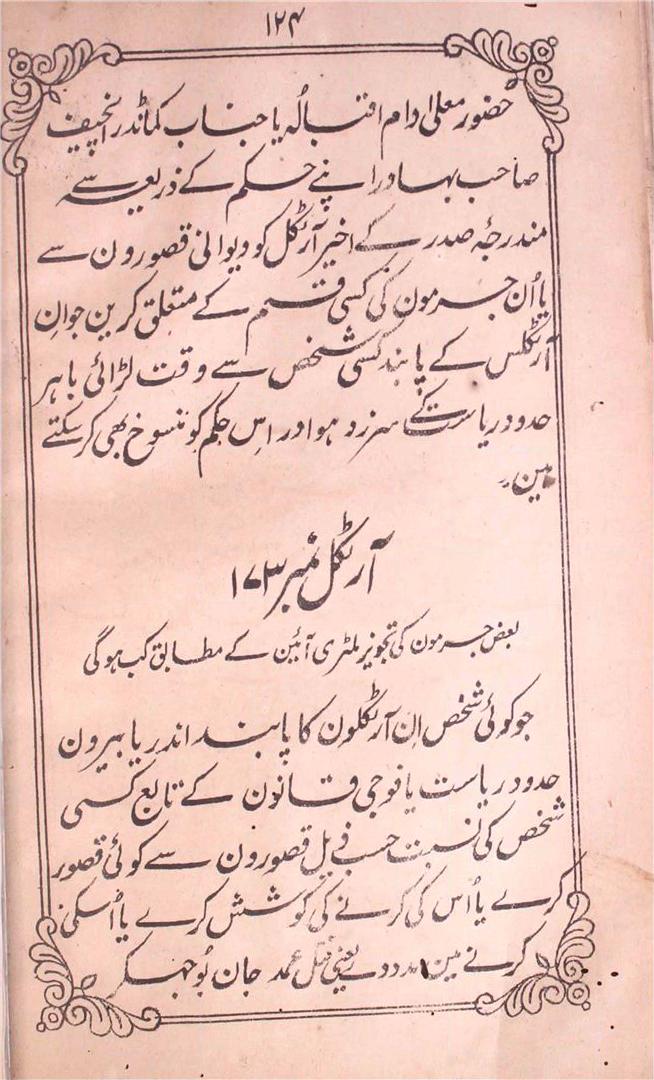 ۱۲۴
حضور معلی ادام اقبالہ یا جناب کمانڈر انچیف
صاحب بہادر اپنے حکم کے ذریعہ سے
مندرجہ صدر کے اخیر آرٹکل کو دیوانی قصورون سے
یا اُن جرمون کی کسی قسم کے متعلق کرین جو اِن
آرٹکلس کے پابند کسی شخص سے وقت لڑائی باہر
حدود ریاست کے سرزد ہوا در اس حکم کو منسوخ بھی کرسکتے
ہین۔
آرٹکل نمبر ۱۷۳
بعض جرمون کی تجویز ملٹری آئین کے مطابق کب ہوگی
جو کوئی شخص اِن آرٹکلون کا پابند اندر یا بیرون
حدود ریاست یا فوجی قانون کے تابع کسی
شخص کی نسبت حسب ذیل قصورون سے کوئی قصور
کرے یا اُس کی کرنے کی کوشش کرے یا اُسکی
کرنے مین مدد دے یعنی قتل عمد جان بُوجہکر